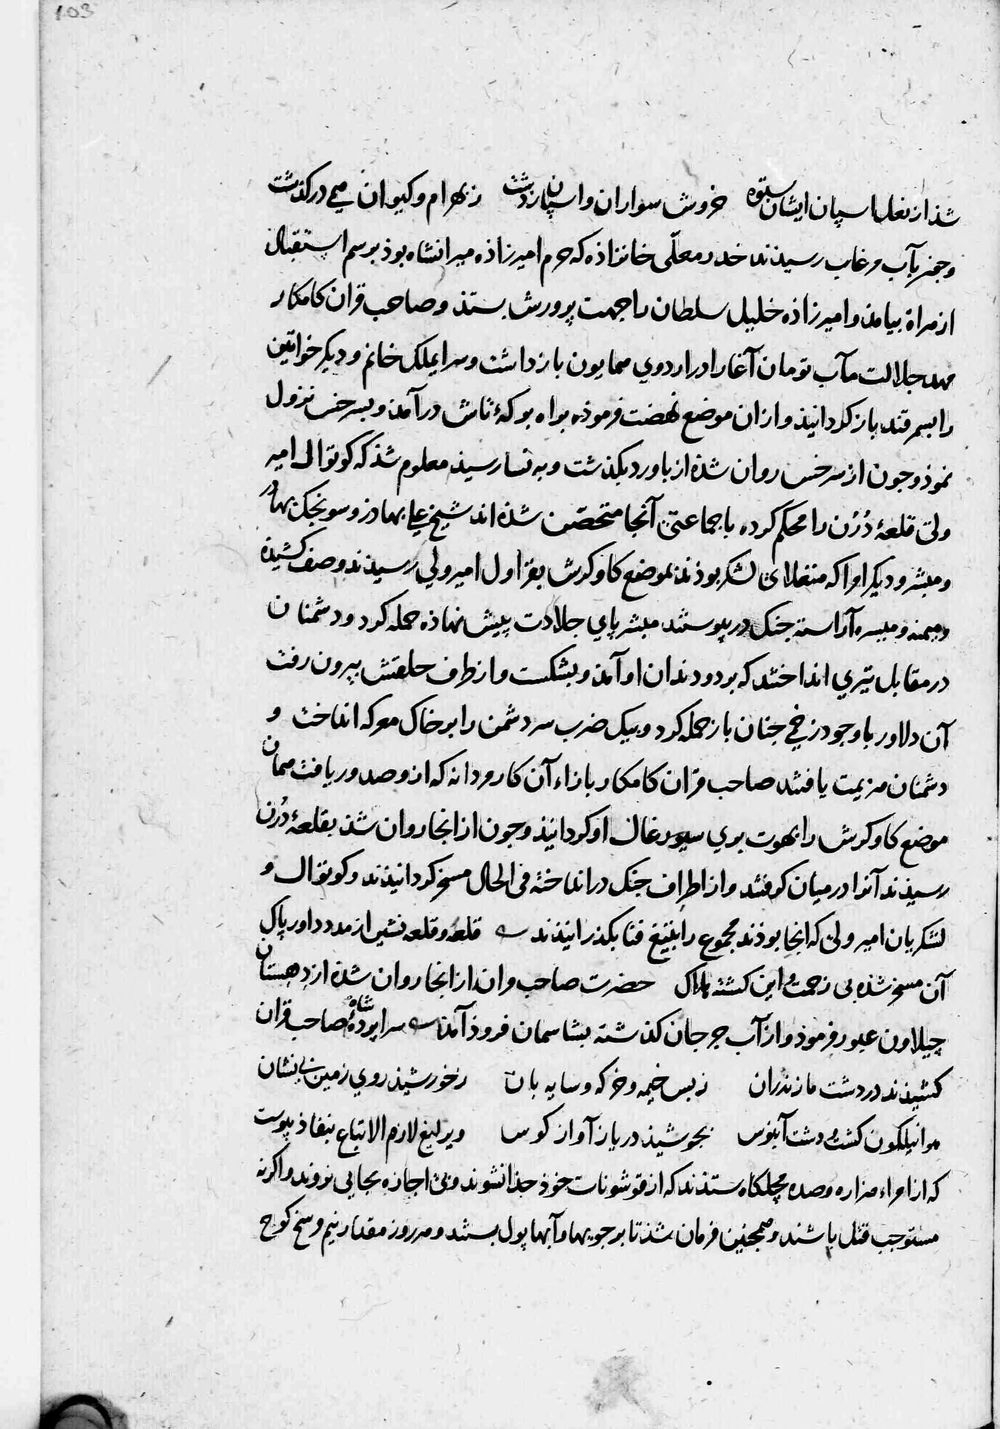 103
شد از نعل اسپان ایشان ستوه خروش سواران و اسپان ز دشت ز بهرام و کیوان همی درگذشت
و جون بآب مرغاب رسیذند خدر معلّی خانزاذه که حرم امیرزاذه میرانشاه بوذ برسم استقبال
از هراة بیامذ و امیرزاذه خلیل سلطان را جهت پرورش بستذ و صاحب قران کامکار
مهد جلالت مآب تومان آغا را در اردوی همایون بازداشت و سرایملک خانم و دیکر خواتین
را بسمرقند باز کردانیذ و ازان موضع نهضت فرموذه براه بوکهٔ تاش درآمذ و بسرخس نزول
نموذ و جون از سرخس روان شذه از باورد بکذشت و به نسا رسیذ معلوم شذ که کوتوال امیر
ولی قلعهٔ دُرُن را محکم کرده با جماعتی آنجا متحصّن شذه اند شیخ علی بهادر و سونجک بهادر
و مبشر و دیکر امرا که منغلای لشکر بوذند بموضع کاوکرش بقراول امیر ولی رسیذند و صف کشیذه
و میمنه و میسره آراسته جنک درپیوستند مبشر پای جلادت پیش نهاذه حمله کرد و دشمنان
در مقابل تیری انداختند که بر دو دندان او آمذ و بشکست و از طرف حلقش بیرون رفت
آن دلاور با وجود زخمی جنان باز حمله کرد و بیک ضرب سر دشمن را بر خاک معرکه انداخت و
دشمنان هزیمت یافتند صاحب قران کامکار بازاء آن کار مردانه که ازو صدور یافت همان
موضع کاوکرش را بهوت بری سیورغال او کردانیذ و جون از انجا روان شذ بقلعهٔ دُرُن
رسیذند آنرا درمیان کرفتند و از اطراف جنک در انداخته فی الحال مسخر کردانیذند و کوتوال و
لشکریان امیر ولی که انجا بوذند مجموع را بتیغ فنا بکذرانیذند قلعه و قلعه نشین از مدد داور پاک
آن مسخر شذه بی زحمت و این کشته هلاک حضرت صاحب قران از انجا روان شذه از دهستان
جیلاون عبور فرموذ و از آب جرجان کذشته بشاسمان فروذ آمذ سراپردهٔ شاه صاحب قران
کشیذند در دشت مازندران ز بس خیمه و خرکه و سایه بان ز خورشیذ روی زمین بی نشان
هوا نیلکون کشت و دشت آبنوس بجوشیذ دریا ز آواز کوس و یرلیغ لازم الاتباع بنفاذ پیوست
که از امراء هزاره و صده مچلکاه ستذند که از قوشونات خوذ جذا نشوند و بی اجازه بجایی نروند و اکر نه
مستوجب قتل باشند و همجنین فرمان شذ تا بر جویها و آبها پول بستند و هر روز مقدار نیم فرسخ کوج